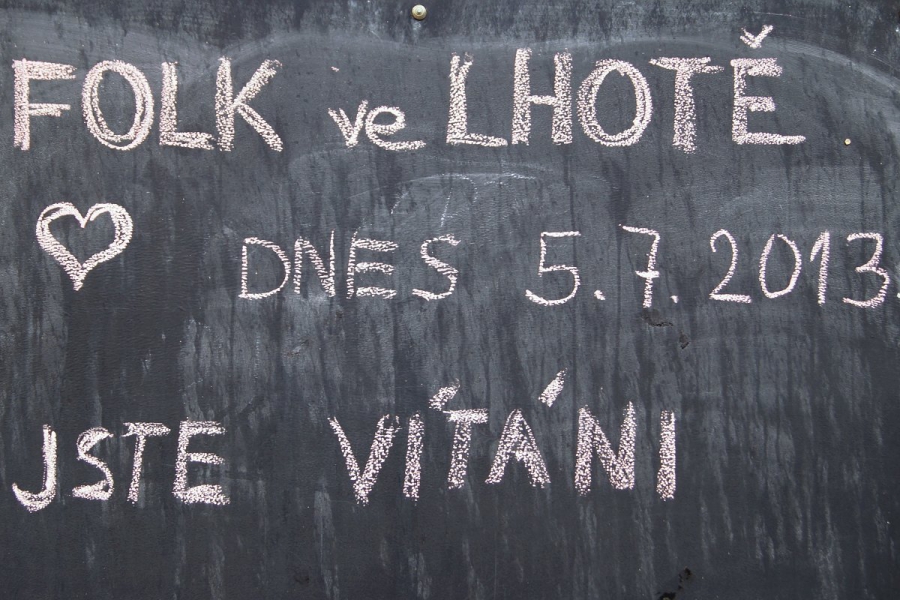 FOLK ve LHOTĚ
DNES 5.7.2013.
JSTE VÍTÁNI